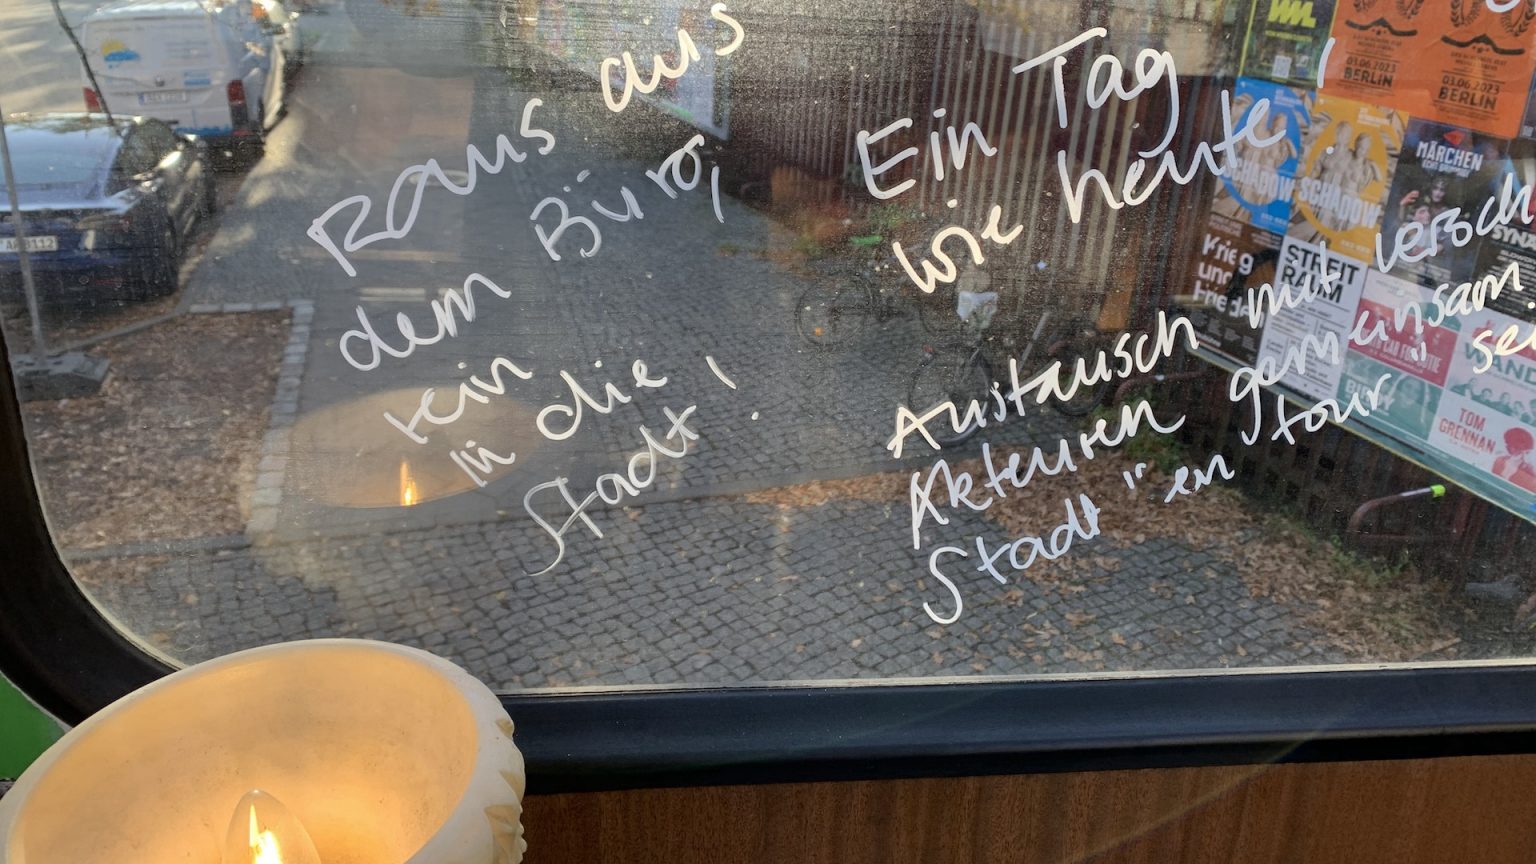 Raus aus
dem Büro,
rein
in die
Stadt!
Ein Tag
wie heute!
Austausch mit versch
Akteuren gemeinsam
Stadt "er" tour" se
03.06.2023
BERLIN
03.06.2023
BERLIN
SCHADOW
SCHADOW
MÄRCHEN
Krieg
und
Frieden
STREIT
RAUM
WAND
TOM
GRENNAN